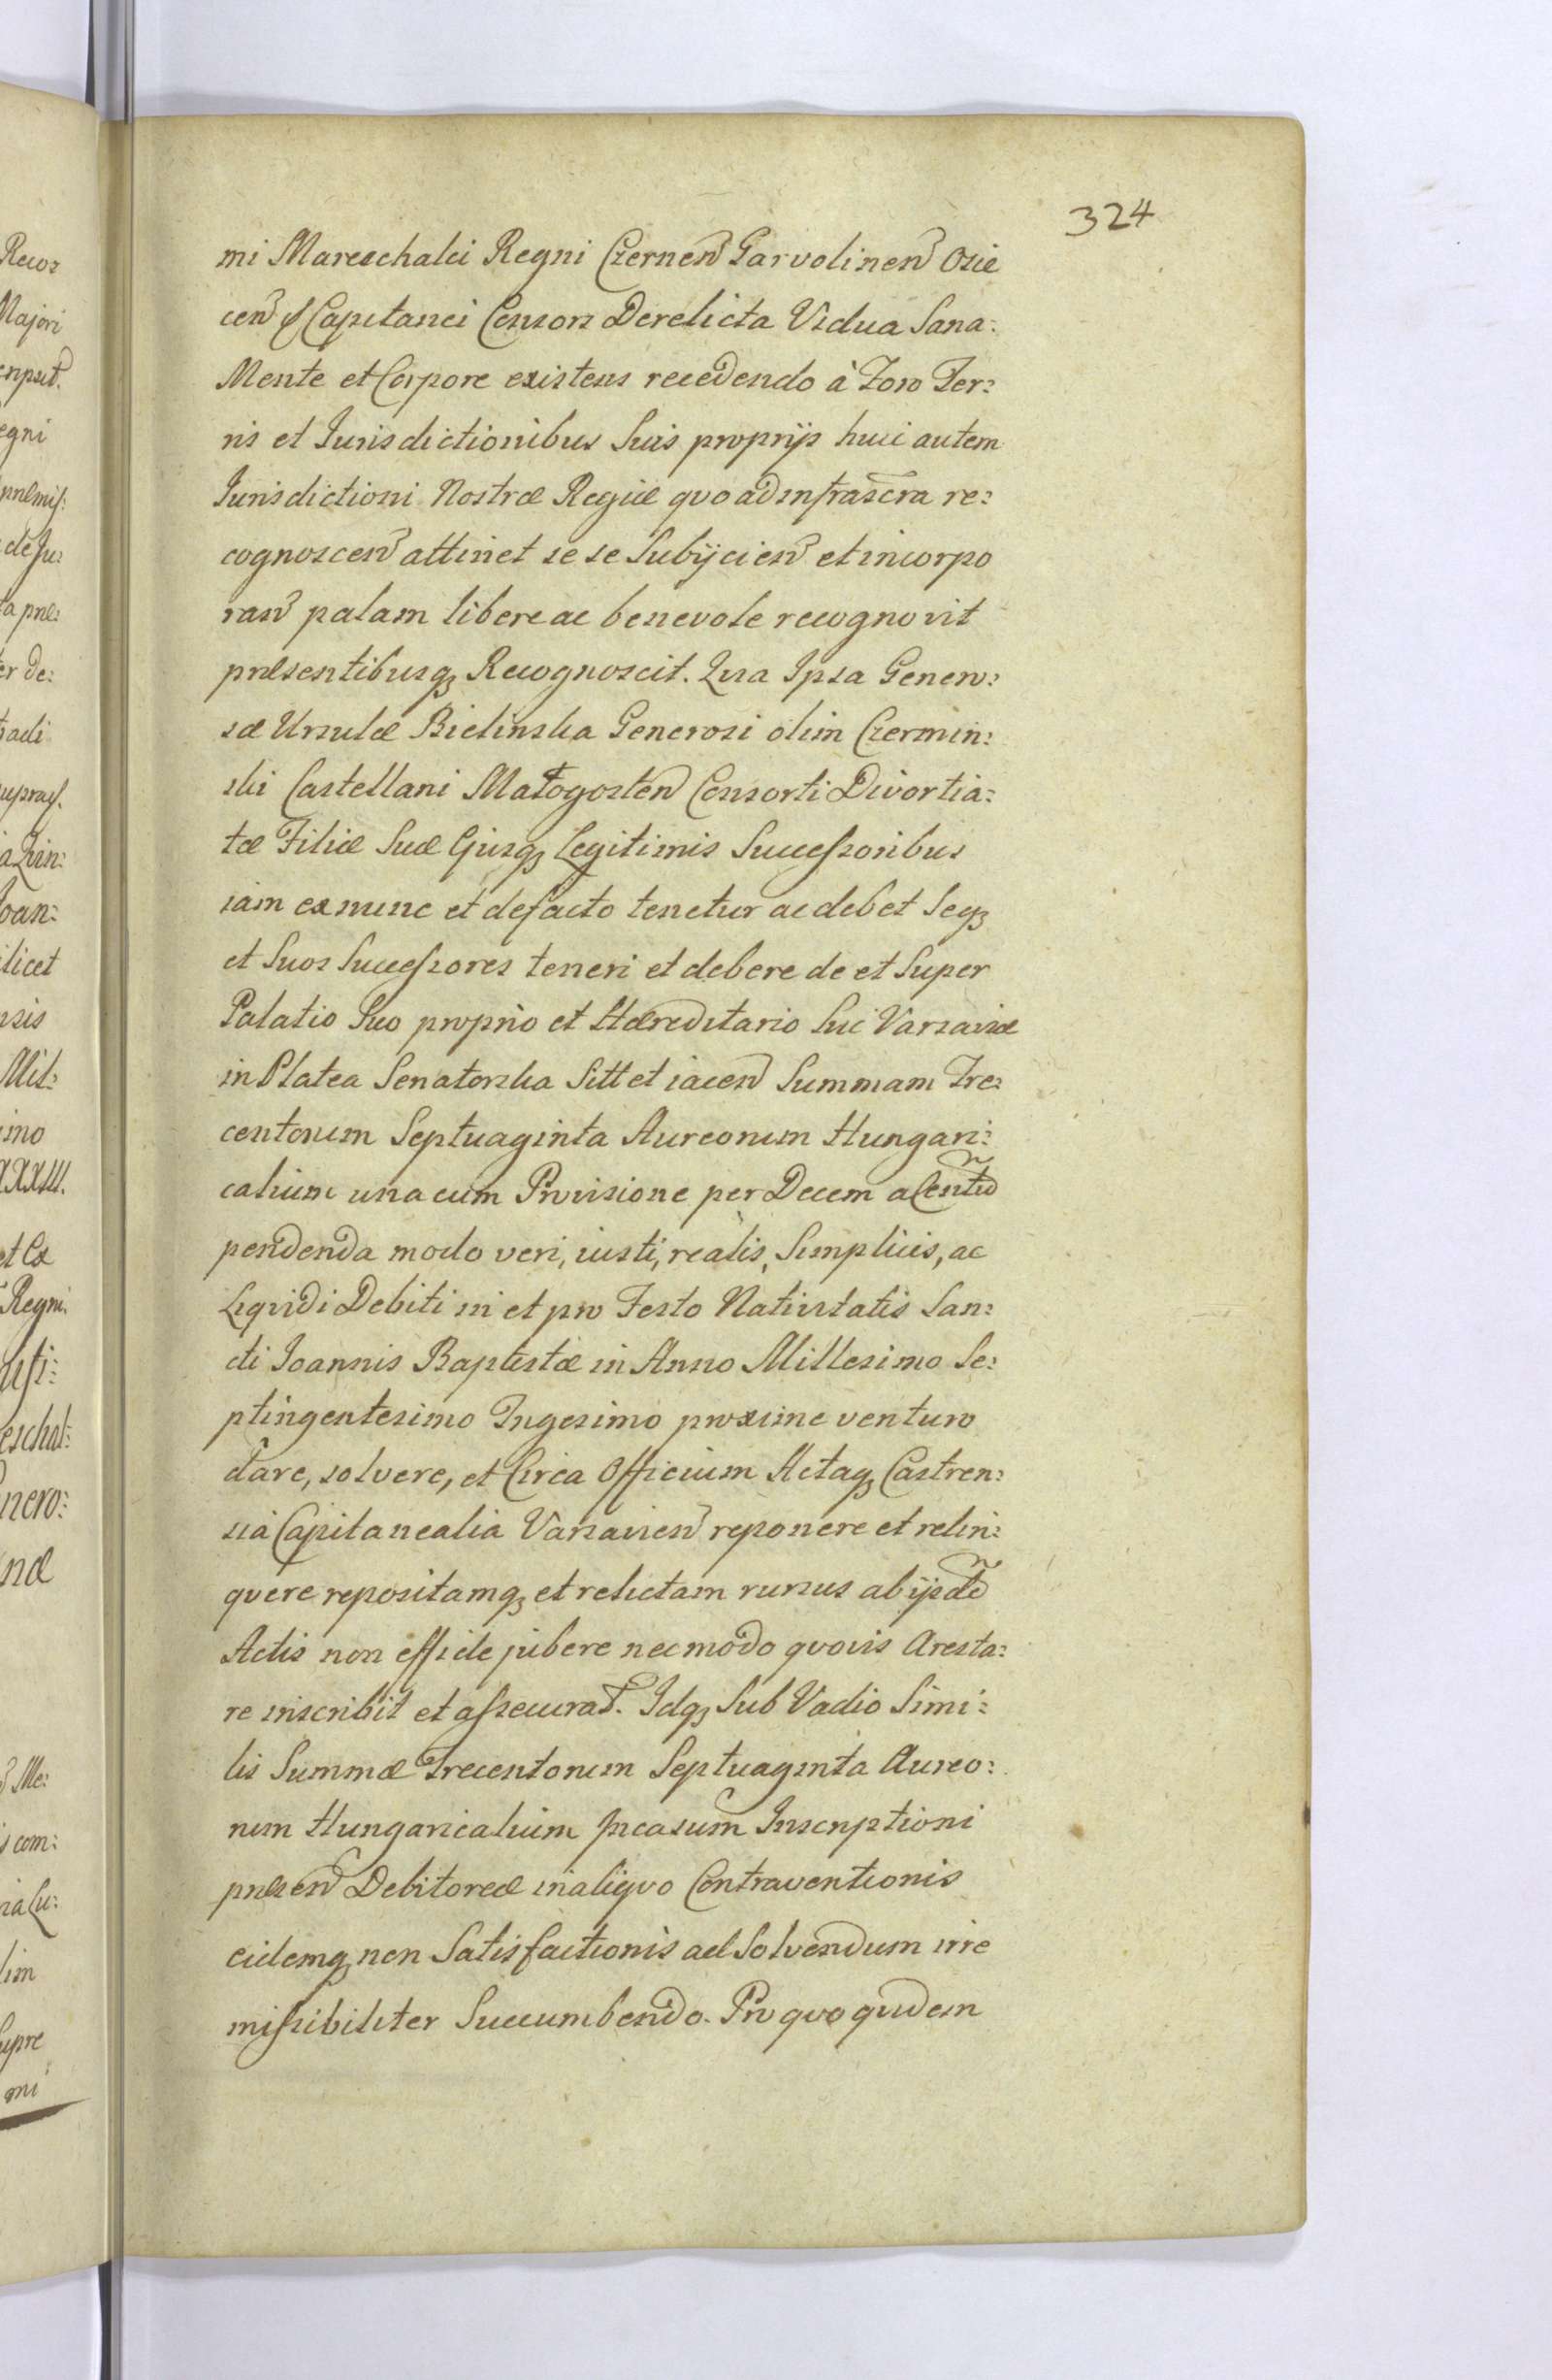 324
mi Mareschalci Regni Czerneñ Garvolineñ Osie
ceñ & Capitanei Consors Derelicta Vidua Sana:
Mente et Corpore existens recedendo à Foro Ter:
ris et Jurisdictionibus Suis proprijs huic autem
Jurisdictioni Nostræ Regiæ qvo ad infrascra re:
cognosceñ attinet se se Subijcieñ et incorpo
rañ palam libere ac benevole recognovit
præsentibusq3 Recognoscit. Qvia Ipsa Genero:
sæ Ursulæ Bielinska Generosi olim Czermin:
ski Castellani Małogosteñ Consorti Divortia:
tæ Filiæ Suæ Ejusq3 Legitimis Successoribus
iam ex nunc et defacto tenetur ac debet Seq3
et Suos Successores teneri et debere de et Super
Palatio Suo proprio et Hæreditario hic Varsaviæ
in Platea Senatorska Sitt et iaceñ Summam Tre:
centorum Septuaginta Aureorum Hungari:
calium una cum Provisione per Decem a Cento
pendenda modo veri, iusti, realis, Simplicis, ac
Liqvidi Debiti in et pro Festo Nativitatis San:
cti Joannis Baptistæ in Anno Millesimo Se:
ptingentesimo Trigesimo proxime venturo
dare, solvere, et Circa Officium Actaq3 Castren:
sia Capitanealia Varsavieñ reponere et relin:
qvere repositamq3 et relictam rursus ab ijsdē
Actis non efficle jubere nec modo qvovis Aresta:
re inscribit et assecurat. Idq3 Sub Vadio Simi:
lis Summæ Trecentorum Septuaginta Aureo:
rum Hungaricalium In casum Inscriptioni
præseñ Debitoreæ in aliqvo Contraventionis
eidemq3 non Satisfactionis ad Solvendum irre
missibiliter Succumbendo. Pro qvo qvidem